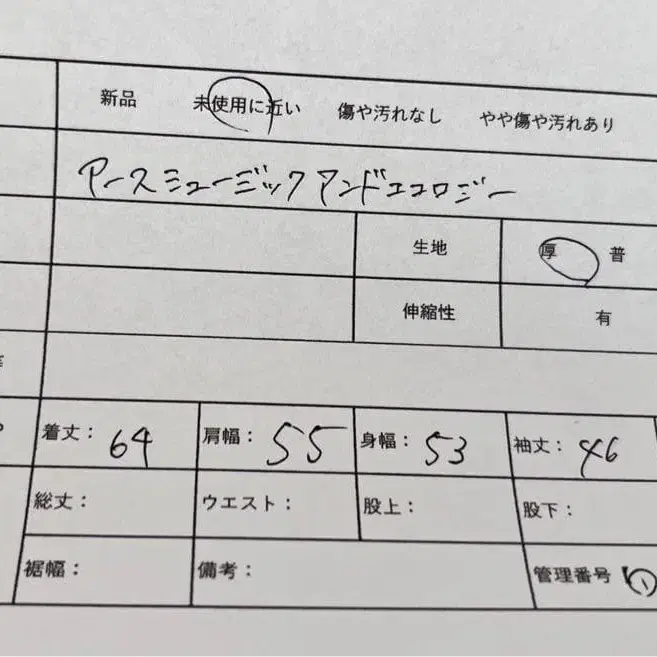 新品 未使用に近い 傷や汚れなし やや傷や汚れあり
アースミュージックアンドエコロジー
生地 厚 普
伸縮性 有
着丈: 64 肩幅: 55 身幅: 53 袖丈: 46
総丈: ウエスト: 股上: 股下:
裾幅: 備考: 管理番号